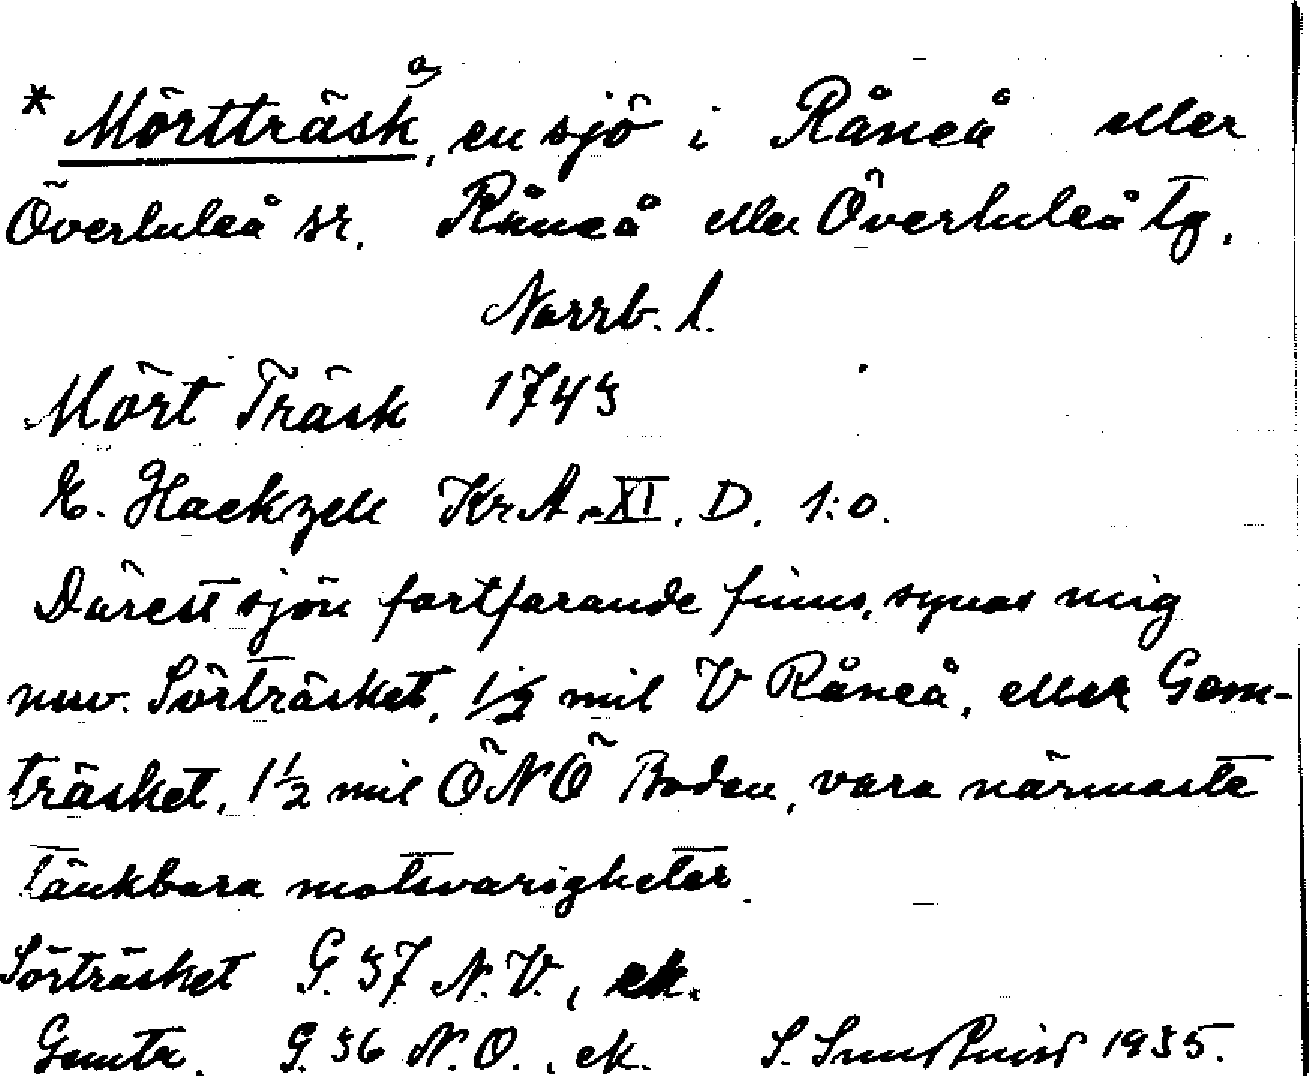 * Mörtträsk, en sjö i Råneå eller
Överluleå sn. Råneå eller Överluleå tg.
Norrb. l.
Mört Träsk 1743
E. Hackzell KrA. XI. D. 1:o.
Därest sjön fortfarande finns, synas mig
nuv. Sörträsket, 1/2 mil V Råneå, eller Gom-
träsket, 1 1/2 mil ÖNÖ Boden, vara närmaste
tänkbara motsvarigheter.
Sörträsket G. 37 N.V., ek.
G. 36 N.O., ek. 1935.